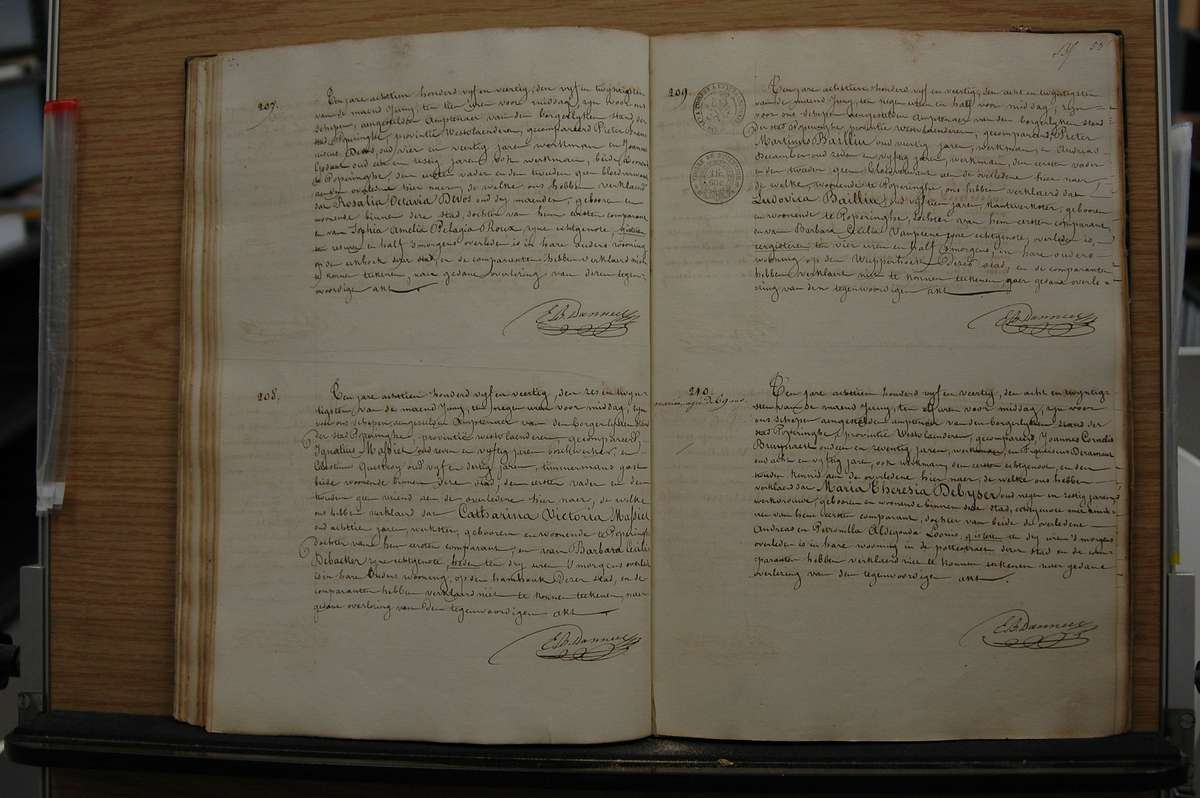 207.
Ten jare achttien honderd vyf en veertig, den vyf en twintigsten
van de maend Juny, ten tien uren voor middag, zyn voor ons
schepen, aengestelden Amptenaer van den borgerlyken stand der
stad Poperinghe, provintie Westvlaenderen, gecompareerd Pieter
oud vier en veertig jaren, workman, en Joannes
oud en zestig jaren, ook werkman, beide woonende
te Poperinghe, den eersten vader en den tweeden geen bloedverwant
aen de overledene hier naer, de welke ons hebben verklaerd
dat Rosalia Octavia Devos oud dry maenden, geboren en
woonende binnen deze stad, dochter van hem eersten comparant
en van Sophia Amelia Pelagia Roux, zyne echtgenote, gisteren
ten zeven en half 's morgens overleden is in hare ouders wooning,
op den eekhoek dezer stad, en de comparanten hebben verklaerd niet
te konnen teekenen, naer gedane overlezing van dezen tegen-
woordige akt
E.B. Danneux
208.
Ten jare achttien honderd vyf en veertig, den zes en twin-
tigsten van de maend Juny, ten negen uren voor middag, zyn
voor ons schepen aengestelden Amptenaer van den borgerlyken stand
der stad Poperinghe, provintie Westvlaenderen, gecompareerd,
Ignatius Massiet oud zeven en vyftig jaren boekwerker, en
Celestinus Quaghey oud vyf en dertig jaren, timmermans gast
beide woonende binnen deze stad, den eersten vader en den
tweeden geen vriend aen de overledene hier naer, de welke
ons hebben verklaerd dat Catharina Victoria Massiet
oud achttien jaren, werkster, geboren en woonende te Poperinghe
dochter van hem eersten comparant, en van Barbara Cecilia
Debacker, zyne echtgenote, heden ten dry uren 's morgens overleden
is in hare ouders wooning, op den hamhouk dezer stad, en de
comparanten hebben verklaerd niet te konnen teekenen, naer
gedane overlezing van den tegenwoordigen akt
E.B. Danneux
58
209.
Ten jare achttien honderd vyf en veertig, den acht en twintigsten
van de maend Juny, ten negen uren en half voor middag, zyn
voor ons schepen aengestelden Amptenaer van den borgerlyken stand
der stad Poperinghe provintie Westvlaenderen, gecompareerd, Pieter
Martinus Baillieu oud veertig jaren, werkman, en Andreas
Decaunter oud zeven en vyftig jaren, werkman, den eersten vader
en den tweeden geen bloedverwant aen de overledene hier naer
de welke, woonende te Poperinghe, ons hebben verklaerd dat
Ludovica Baillieu, oud vyftien jaren, kantwerkster, geboren
en woonende te Poperinghe, dochter van hem eersten comparant,
en van Barbara Cecilia Vanpeene zyne echtgenote, overleden is,
eergisteren ten vier uren en half 's morgens, in hare ouders
wooning op den Wippenhoek dezer stad, en de comparanten
hebben verklaert niet te konnen teekenen, naer gedane overle-
zing van den tegenwoordigen akt
E.B. Danneux
210.
Ten jare achttien honderd vyf en veertig, den acht en twintig-
sten van de maend Juny, ten elf uren voor middag, zyn voor
ons schepen aengestelden amptenaer van den borgerlyken stand der
stad Poperinghe, provintie Westvlaenderen, gecompareerd, Joannes Cornelis
Bruynaert oud een en zeventig jaren, werkman, en Deramour
oud acht en vyftig jaren, ook werkman, den eersten echtgenoot, en den
tweeden kennis aen de overledene hier naer, de welke ons hebben
verklaerd dat Maria Theresia Debyser oud negen en zestig jaren,
werkvrouwe, geboren en woonende binnen deze stad, echtgenote
van hem eersten comparant, dochter van beide de overledene
Andreas en Petronilla Aldegonda Looms, gisteren ten dry uren 's morgens
overleden is in hare wooning in de potteestraet dezer stad en de com-
paranten hebben verklaerd niet te konnen teekenen naer gedane
overlezing van den tegenwoordigen akt
E.B. Danneux